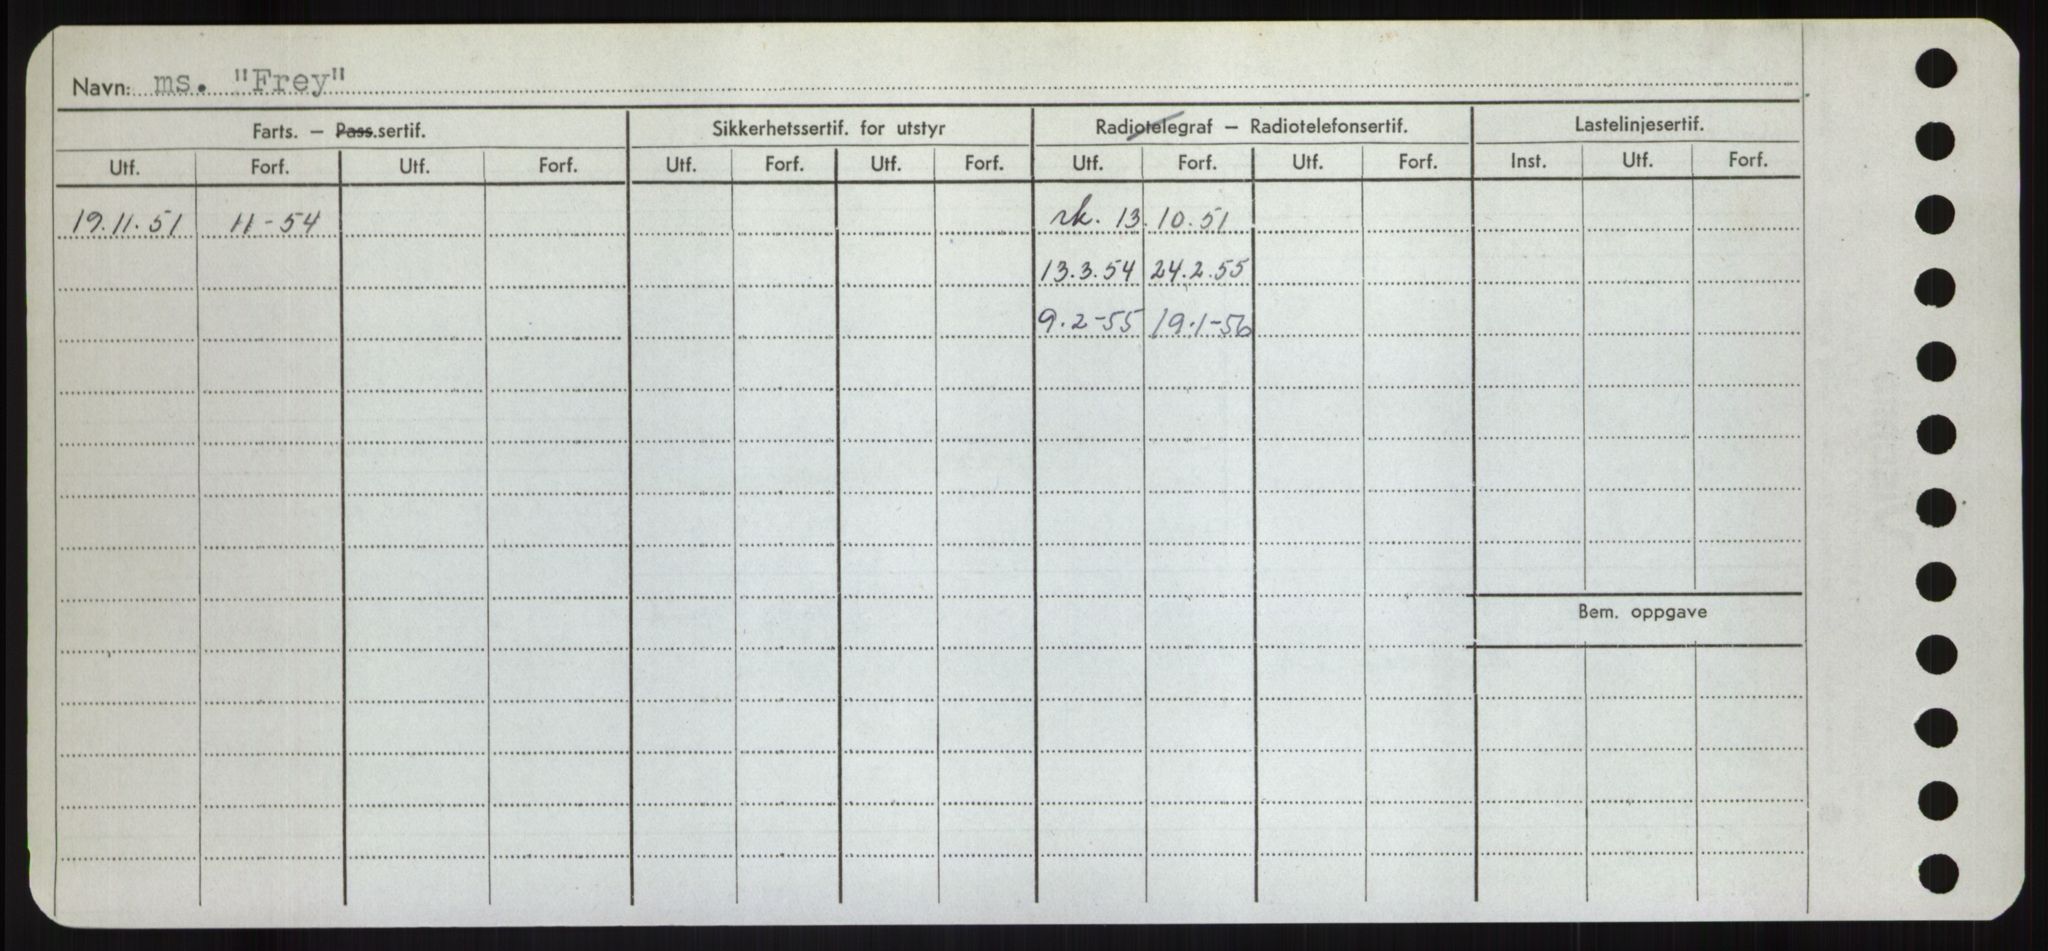 Navn: ms. "Frey"
Farts. — Pass.sertif. Sikkerhetssertif. for utstyr Radiotelegraf — Radiotelefonsertif. Lastelinjesertif.
Utf. Forf. Utf. Forf. Utf. Forf. Utf. Forf. Utf. Forf. Utf. Forf. Inst. Utf. Forf.
19.11.51 11-54 rk. 13.10.51
13.3.54 24.2.55
9.2-55 19.1-56
Bem. oppgave